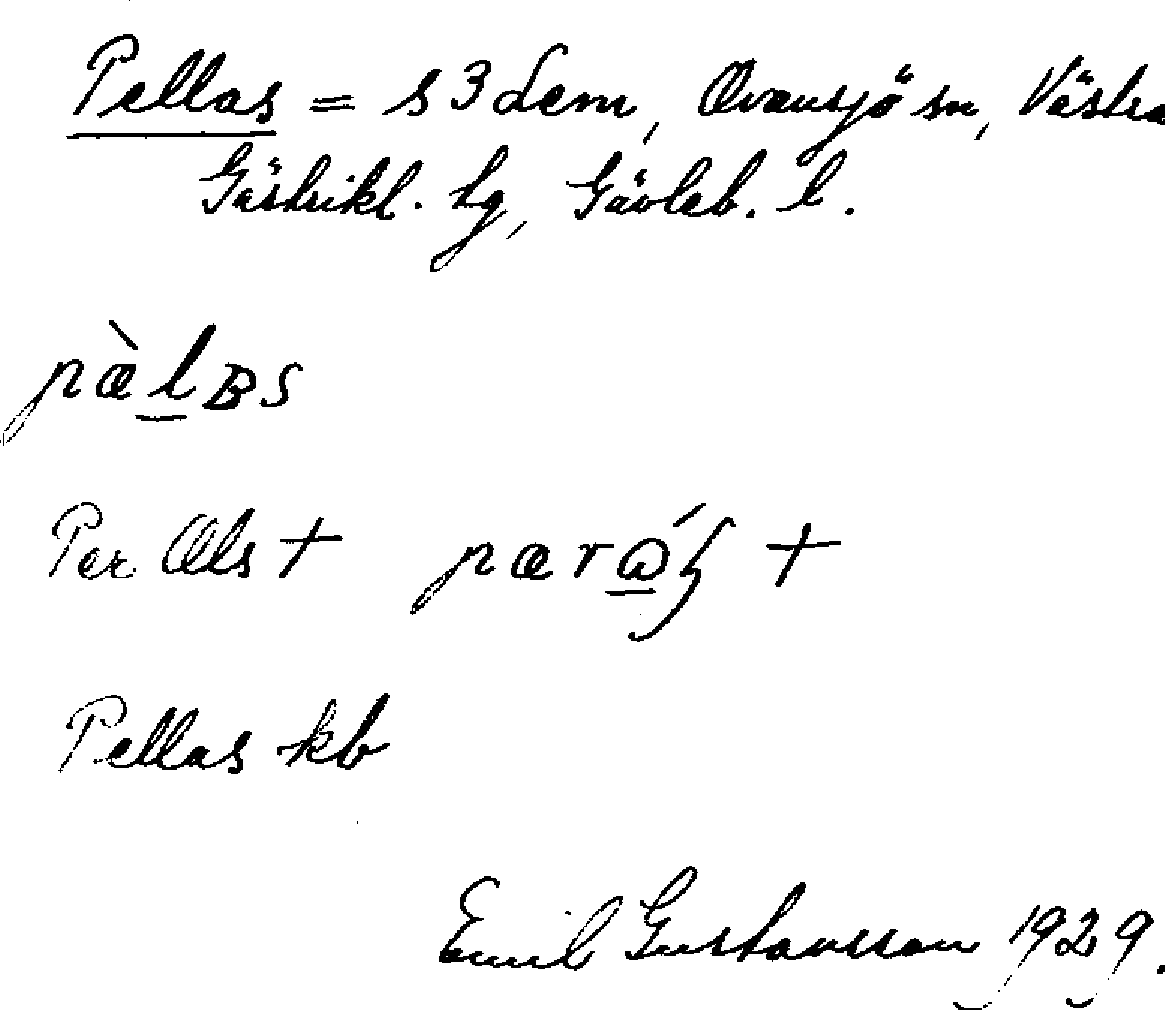 Pellas = s 3 dem, Ovansjö sn, Västra
Gästrikl. tg, Gävleb. l.
pæ̀l̲ʙs
Per Ols +   +
Pellas kb
Emil Gustavsson 1929.